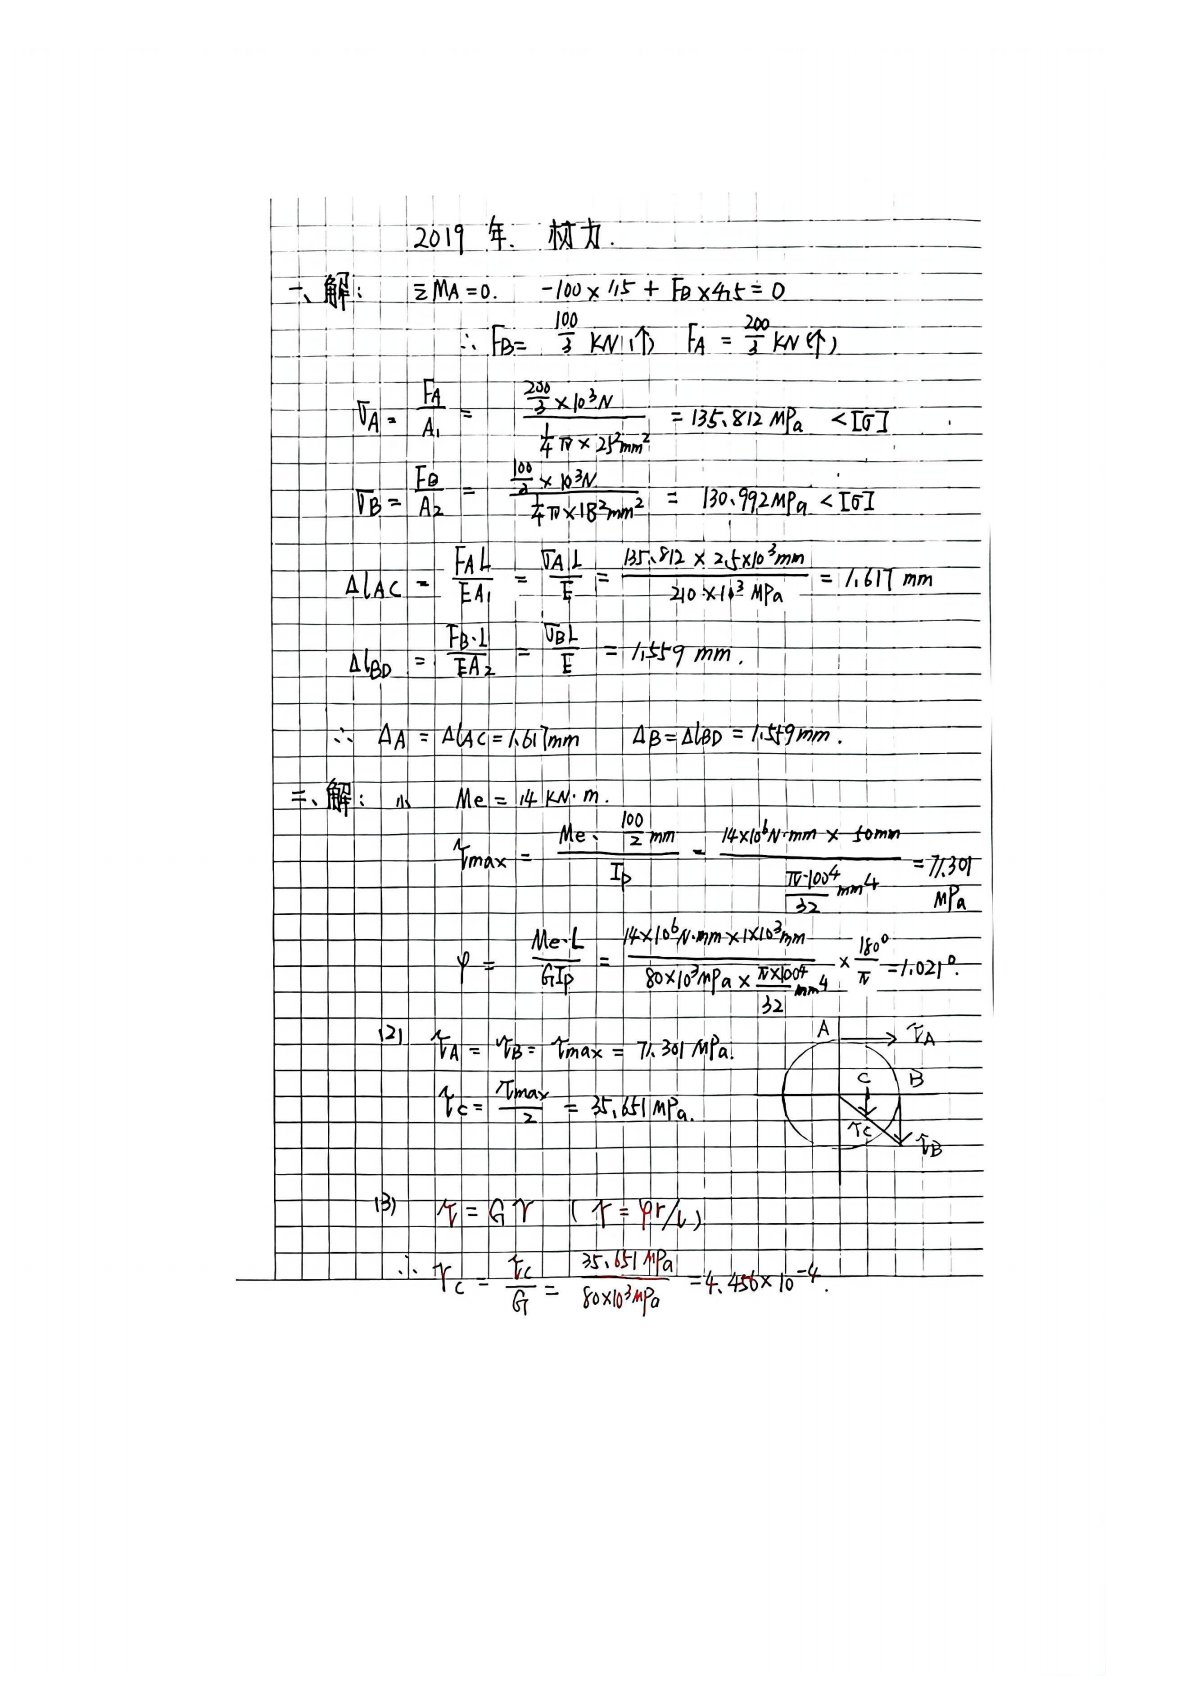 2019 年. 材力.
一、解: ΣMA=0. -100×1.5 + FB×4.5=0
∴ FB= 100/3 KN(↑) FA = 200/3 KN(↑)
σA = FA/A1 = (200/3 ×10³N)/(1/4 π×25²mm²) = 135.812 MPa <[σ]
σB = FB/A2 = (100/3 ×10³N)/(1/4 π×18²mm²) = 130.992MPa <[σ]
ΔlAC = FAL/EA1 = σAL/E = (135.812 × 2.5×10³mm)/(210×10³ MPa) = 1.617 mm
ΔlBD = FB·L/EA2 = σBL/E = 1.559 mm.
∴ ΔA = ΔlAC = 1.617mm ΔB=ΔlBD = 1.559mm.
二、解: (1) Me = 14 KN·m.
τmax = (Me· 100/2 mm)/Ip = (14×10⁶N·mm × 50mm)/(π·100⁴/32 mm⁴) = 71.301 MPa
φ = Me·L/GIp = (14×10⁶N·mm×1×10³mm)/(80×10³MPa × π×100⁴/32 mm⁴) × 180°/π =1.021°.
(2) τA = τB = τmax = 71.301 MPa.
A τA
τC = τmax/2 = 35.651MPa.
C B
τC τB
(3) τ = Gγ (γ = φr/L)
∴ γC = τC/G = 35.651MPa/80×10³MPa =4.456×10⁻⁴.